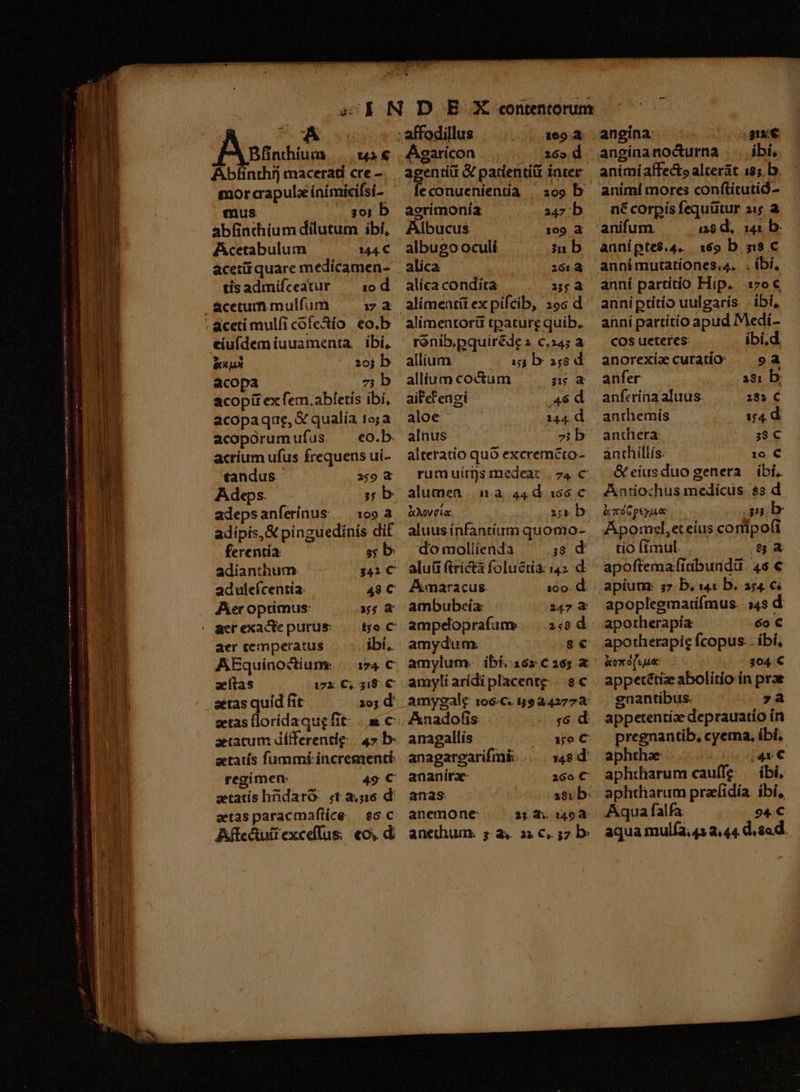 INDEX contentorum
A
ABsinthium 142 c
Absinthij macerati cre-
mor crapulæ inimicissi-
mus 303 b
absinthium dilutum ibi,
Acetabulum 144 c
acetū quare medicamen-
tis admisceatur 10 d
acetum mulsum 17 a
aceti mulsi cōfectio eo.b
eiusdem iuuamenta ibi,
ἀκμὴ 203 b
acopa 73 b
acopū ex fem. abietis ibi,
acopa quę, & qualia 103 a
acoporum usus eo.b.
acrium usus frequens ui-
tandus 259 a
Adeps 35 b
adeps anserinus 109 a
adipis, & pinguedinis dif
ferentia 35 b
adianthum 342 c
adulescentia 48 c
Aer optimus 155 a
aer exacte purus 150 c
aer temperatus ibi.
AEquinoctium 174 c
æstas 172 c, 318 c
ætas quid fit 203 d
ætas florida quę fit a c
ætatum differentię 47 b
ætatis summi incrementi
regimen 49 c
ætatis hñdarō. 51 a, 316 d
ætas paracmastice 86 c
Affectuū excessus eo, d
affodillus 109 a
Agaricon 265 d
agentiū & patientiū inter
se conuenientia 209 b
agrimonia 247 b
Albucus 109 a
albugo oculi 311 b
alica 261 a
alica condita 235 a
alimentū ex piscib, 296 d
alimentorū tpaturę quib.
rōnib. pquirēdę 2 c, 243 a
allium 153 b 258 d
allium coctum 315 a
aifefengi 46 d
aloe 144 d
alnus 73 b
alteratio quō excremēto-
rum uirijs medeat 74 c
alumen 11 a 44 d 166 c
ἀλουσία 231 b
aluus infantium quomo-
do mollienda 38 d
aluū strictā soluētia 142 d
Amaracus 100 d
ambubeia 247 a
ampeloprasum 258 d
amydum 8 c
amylum ibi. 162 c 263 a
amyli aridi placentę 8 c
amygalę 106 c. 119 a 427 7 a
Anadosis 56 d
anagallis 150 c
anagargarismi 148 d
ananiræ 260 c
anas 281 b
anemone 23 a. 149 a
anethum 5 a. 22 c, 37 b
angina 312 c
angina nocturna ibi,
animi affectꝰ alterāt 183 b
animi mores constitutiō-
nē corpis sequūtur 215 a
anisum 128 d, 141 b
anni ptes. 4. 169 b 318 c
anni mutationes. 4. ibi,
anni partitio Hip. 170 c
anni ptitio uulgaris ibi,
anni partitio apud Medi-
cos ueteres ibi, d
anorexiæ curatio 9 a
anser 281 b
anserina aluus 282 c
anthemis 154 d
anthera 38 c
anthillis 10 c
& eius duo genera ibi,
Antiochus medicus 88 d
ἀπόβρεγμα 313 b
Apomel, et eius compositio
tio simul 83 a
apostema siiibundū 46 c
apium 37 b, 141 b, 254 c
apoplegmatismus 148 d
apotherapia 60 c
apotherapię scopus ibi,
ἀποζέμα 304 c
appetētiæ abolitio in præ
gnantibus 7 a
appetentiæ deprauatio in
pregnantib. cyema, ibi,
aphthæ 41 c
aphtharum caussę ibi,
aphtharum præsidia ibi,
Aqua salsa 94 c
aqua mulsa, 42 a, 44 d, 80 d.